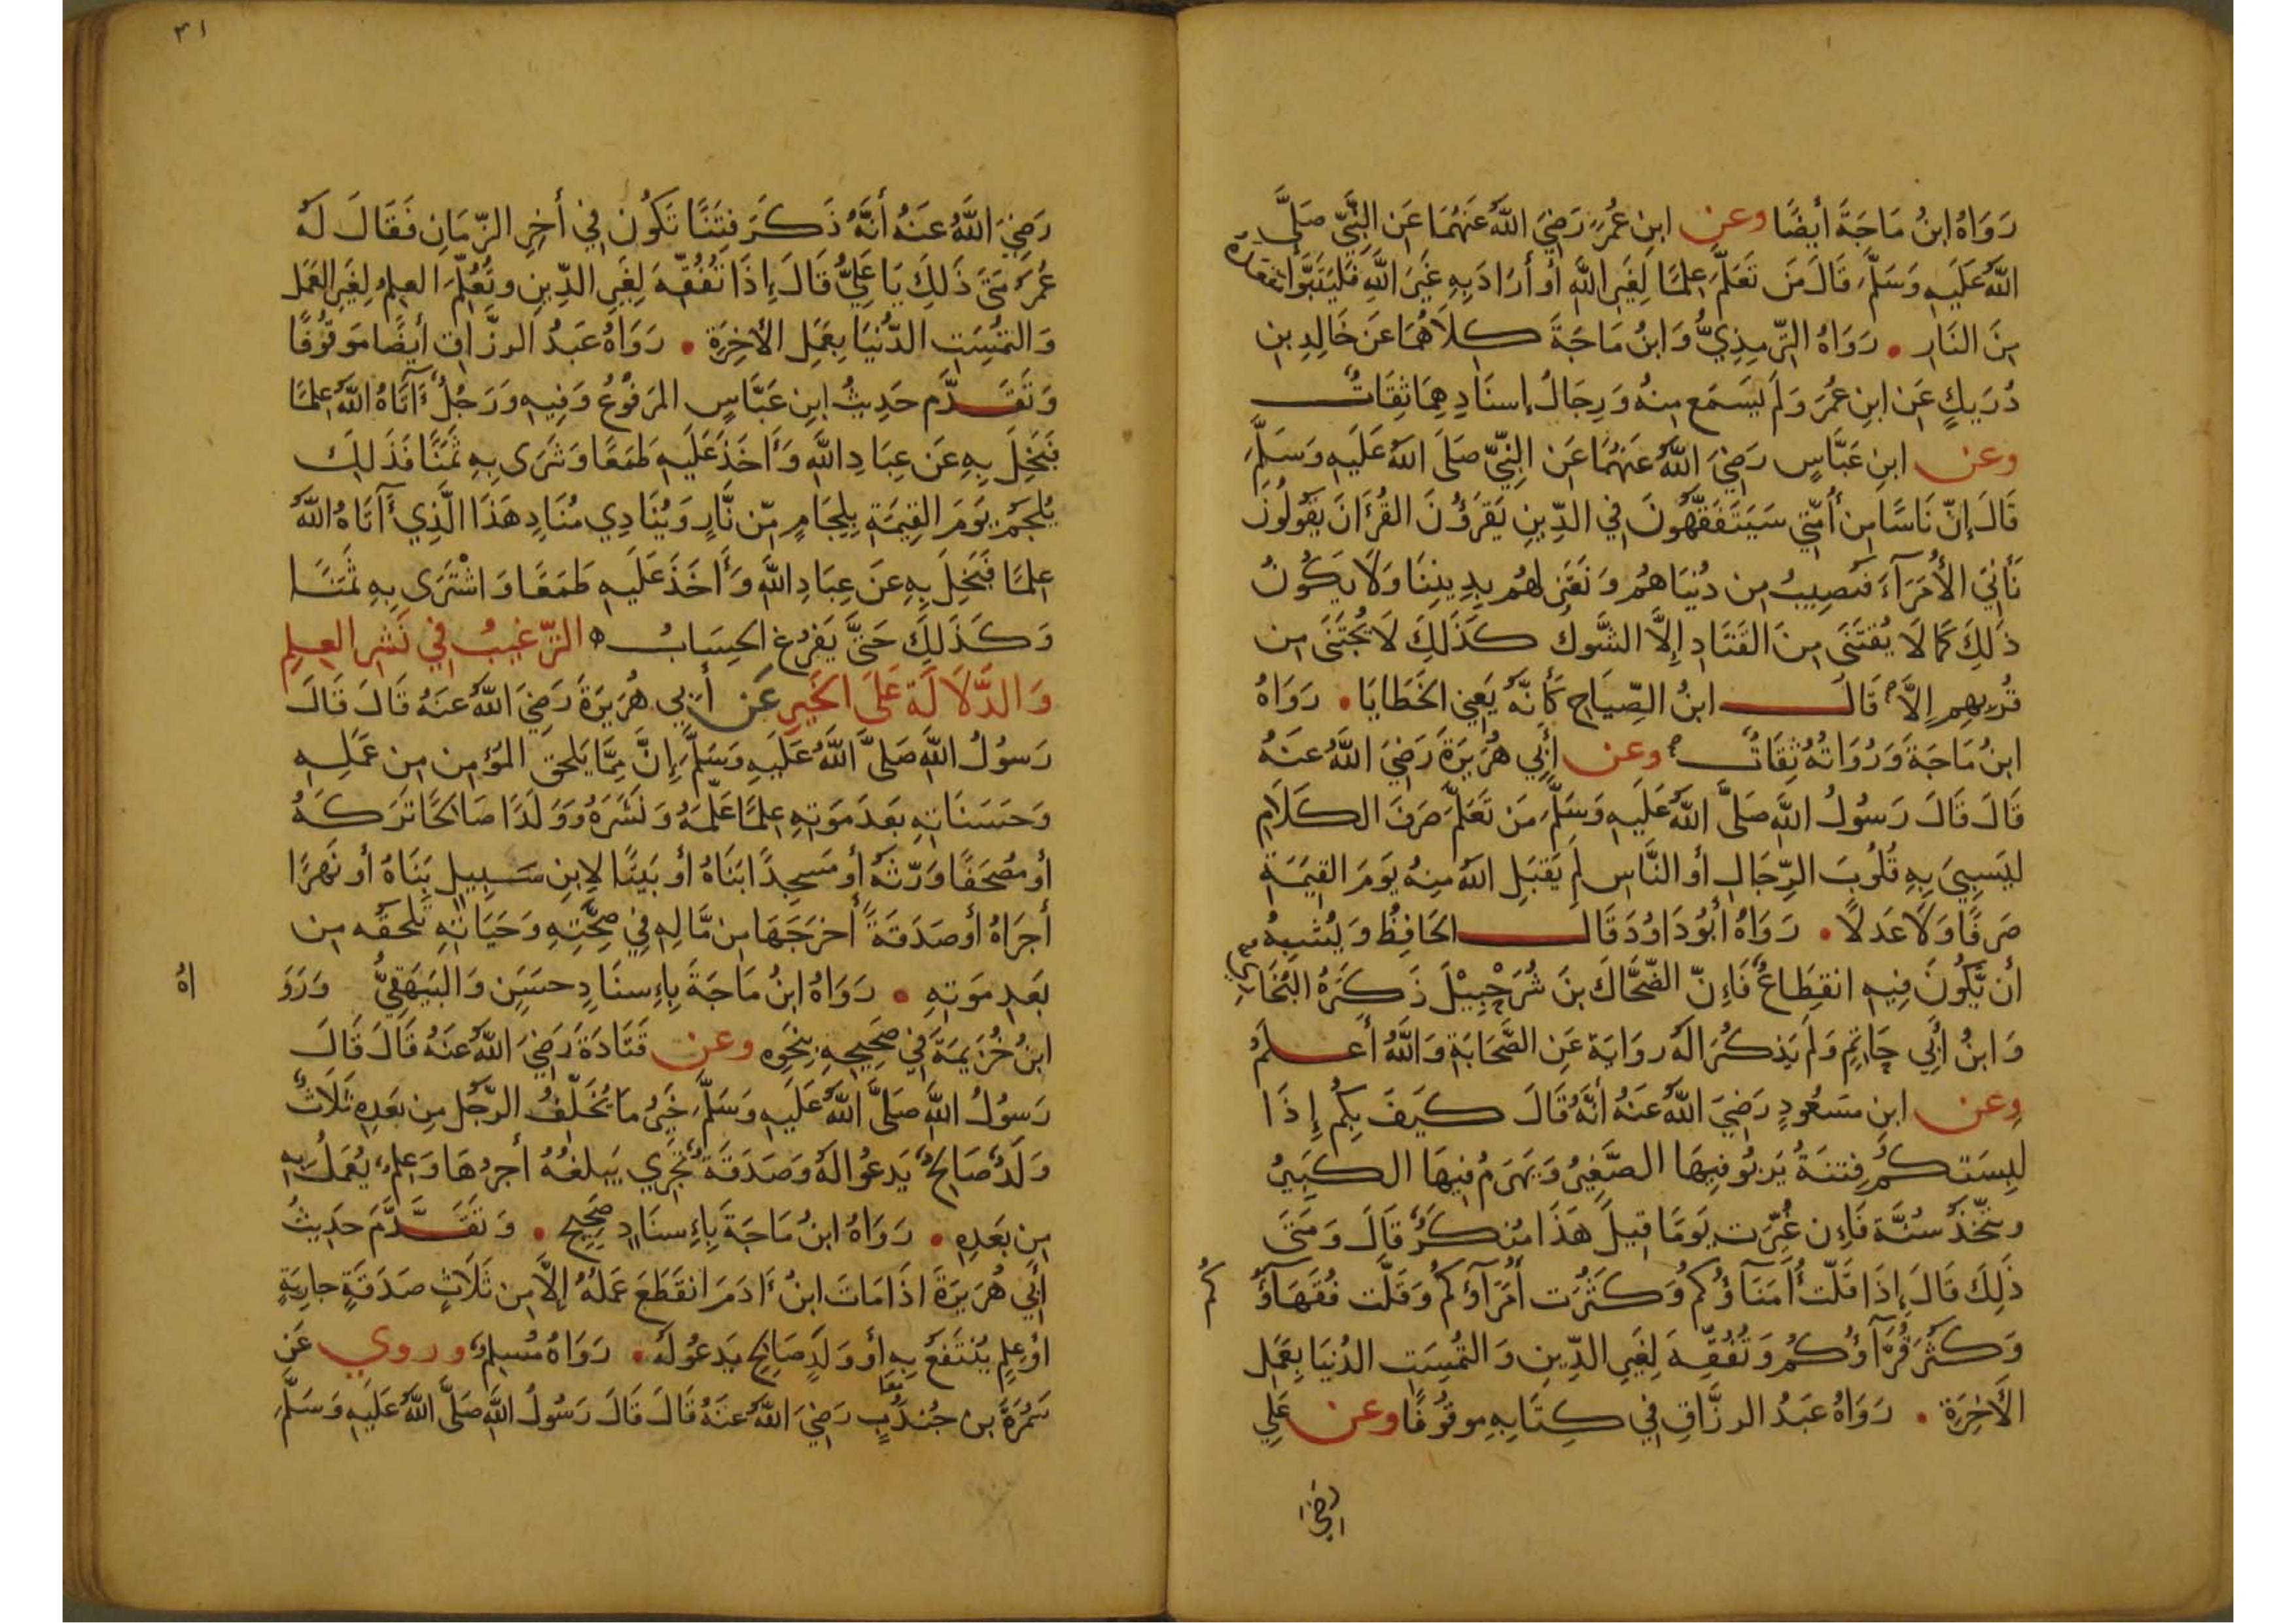 رَوَاهُ ابنُ مَاجَةَ أيضًا وعنِ ابنِ عُمَرَ رَضِيَ اللَّهُ عَنهُمَا عَنِ النَّبِيِّ صَلَّى
اللَّهُ عَلَيهِ وَسَلَّمَ قَالَ مَن تَعَلَّمَ عِلمًا لِغَيرِ اللَّهِ أو أرَادَ بِهِ غَيرَ اللَّهِ فَليَتَبَوَّأ مَقعَدَهُ
مِنَ النَّارِ • رَوَاهُ التِّرمِذِيُّ وَابنُ مَاجَةَ كِلَاهُمَا عَن خَالِدِ بنِ
دُرَيكٍ عَنِ ابنِ عُمَرَ وَلَم يَسمَع مِنهُ وَرِجَالُ إسنَادِهِمَا ثِقَاتٌ
وعن ابنِ عَبَّاسٍ رَضِيَ اللَّهُ عَنهُمَا عَنِ النَّبِيِّ صَلَّى اللَّهُ عَلَيهِ وَسَلَّمَ
قَالَ إنَّ نَاسًا مِن أُمَّتِي سَيَتَفَقَّهُونَ فِي الدِّينِ يَقرَؤُنَ القُرءَانَ يَقُولُونَ
نَأتِي الأُمَرَآءَ فَنُصِيبُ مِن دُنيَاهُم وَنَعتَزِلُهُم بِدِينِنَا وَلَا يَكُونُ
ذَلِكَ كَمَا لَا يُقتَنَى مِنَ القَتَادِ إلَّا الشَّوكُ كَذَلِكَ لَا يُجتَنَى مِن
قُربِهِم إلَّا قَالَ ابنُ الصِّيَاحِ كَأنَّهُ يَعنِي الخَطَايَا • رَوَاهُ
ابنُ مَاجَةَ وَرُوَاتُهُ ثِقَاتٌ وعن أبِي هُرَيرَةَ رَضِيَ اللَّهُ عَنهُ
قَالَ قَالَ رَسُولُ اللَّهِ صَلَّى اللَّهُ عَلَيهِ وَسَلَّمَ مَن تَعَلَّمَ صَرفَ الكَلَامِ
لِيَسبِيَ بِهِ قُلُوبَ الرِّجَالِ أو النَّاسِ لَم يَقبَلِ اللَّهُ مِنهُ يَومَ القِيمَةِ
صَرفًا وَلَا عَدلًا • رَوَاهُ أبُو دَاوُدَ قَالَ الحَافِظُ وَيُشبِهُ
أن يَّكُونَ فِيهِ انقِطَاعٌ فَإنَّ الضَّحَّاكَ بنَ شُرَحْبِيْلَ ذَكَرَهُ البُخَارِي
وَابنُ أبِي حَاتِمٍ وَلَم يَذكُرَا لَهُ رِوَايَة عَنِ الصَّحَابَةِ وَاللَّهُ أعلَمُ
وعن ابنِ مَسعُودٍ رَضِيَ اللَّهُ عَنهُ أنَّهُ قَالَ كَيفَ بِكُم إذَا
لبِسَتكُم فِتنَةٌ يَربُو فِيهَا الصَّغِيرُ وَيَهرَمُ فِيهَا الكَبِيرُ
وتتَّخَذُ سُنَّة فَإن غُيِّرَت يَومًا قِيلَ هَذَا مُنكَرٌ قَالَ وَمَتَى
ذَلِكَ قَالَ إذَا قَلَّت أُمَنَآؤُكُم وَكَثُرَت أُمَرَآؤُكُم وَقَلَّت فُقَهَآؤُ كُم
وَكَثُرَ قُرَّآؤُكُم وَتُفُقِّهَ لِغَيرِ الدِّينِ وَالتُمِسَتِ الدُّنيَا بِعَمَلِ
الأخِرَةِ • رَوَاهُ عَبدُ الرزَّاقِ فِي كِتَابِهِ موقُوفًا وعن عَلِي
رَضِيَ
٣١
رَضِيَ اللَّهُ عَنهُ أنَّهُ ذَكَرَ فِتَنًا تَكُونُ فِي أخِرِ الزّمَانِ فَقَالَ لَهُ
عُمَرُ مَتَى ذَلِكَ يَا عَلِيُّ قَالَ إذَا تُفُقِّهَ لِغَيرِ الدِّينِ وتُعُلِّمَ العِلمُ لِغَيرِ العَمَلِ
وَالتمُسَتِ الدُّنيَا بِعَمَلِ الأخِرَةِ • رَوَاهُ عَبدُ الرزَّاقِ أيضًا مَوقُوفًا
وَتَقَدَّم حَدِيثُ ابنِ عَبَّاسٍ المَرفُوعُ وَفِيهِ وَرَجُلٌ ءَآتَاهُ اللَّهُ عِلمًا
فَبَخِلَ بِهِ عَن عِبَادِ اللَّهِ وَأخَذَ عَلَيهِ طَمَعًا وَشَرَى بِهِ ثَمَنًا فَذَلِكَ
يُلجَمُ يَومَ القِيمَةِ بِلِجَامٍ مِّن نَّارٍ وَيُنَادِي مُنَادٍ هَذَا الَّذِي ءَآتَاهُ اللَّهُ
عِلمًا فَبَخِلَ بِهِ عَن عِبَادِ اللَّهِ وَأخَذَ عَلَيهِ طَمَعًا وَاشْتَرَى بِهِ ثَمَنًا
وَكَذَلِكَ حَتَّى يَفرُغَ الحِسَابُ ه التَّرغِيبُ فِي نَشرِ العِلمِ
وَالدَّلَالَة عَلَى الخَيرِ عَن أبِي هُرَيرَةَ رَضِيَ اللَّهُ عَنهُ قَالَ قَالَ
رَسُولُ اللَّهِ صَلَّى اللَّهُ عَلَيهِ وَسَلَّمَ إنَّ مِمَّا يَلحق المُؤمِن مِن عَمَلِهِ
وَحَسَنَاتِهِ بَعدَ مَوتِهِ عِلمًا عَلَّمَهُ وَنَشَرَهُ وَوَلَدًا صَالحًا تَرَكَهُ
أو مُصحَفًا وَرّثَهُ أو مَسجِدًا بَنَاهُ أو بَيتًا لِابنِ سَبِيلٍ بَنَاهُ أو نَهرًا
أجرَاهُ أو صَدَقَةً أخرَجَهَا مِن مَّالِهِ فِي صِحَّتِهِ وَحَيَاتِهِ تَلحَقُه مِن
بَعدِ مَوتِهِ • رَوَاهُ ابنُ مَاجَةَ بِإسنَادٍ حسَنٍ وَالبَيهَقِيُّ وَرَوَ اهُ
ابنُ خُزَيمَةَ فِي صَحِيحِهِ بِنَحوِهِ وعن قَتَادَةَ رَضِيَ اللَّهُ عَنهُ قَالَ قَالَ
رَسُولُ اللَّهِ صَلَّى اللَّهُ عَلَيهِ وَسَلَّمَ خَيرُ مَا يُخَلِّفُ الرَّجُل مِن بَعدِهِ ثَلَاثٌ
وَلَدٌ صَالِحٌ يَدعُوا لَهُ وَصَدَقَةٌ تَجرِي يَبلغُهُ أجرُهَا وَعِلمٌ يُعمَلُ بِهِ
مِن بَعدِهِ • رَوَاهُ ابنُ مَاجَةَ بِإسنَادٍ صَحِيحٍ • وَتَقَدَّمَ حَدِيثُ
أبِي هُرَيرَةَ اذَا مَاتَ ابنُ ءَادَمَ انقَطَعَ عَمَلُهُ إلَّا مِن ثَلَاثٍ صَدَقَةٍ جارِيَةٍ
اوعِلمٍ يُنتَفَعُ بِهِ أو وَلَدٍ صَالِحٍ يَدعُو لَهُ • رَوَاهُ مُسلِمٌ وروي عَن
سَمُرَةَ بن جُندُبٍ رَضِيَ اللَّهُ عَنهُ قَالَ قَالَ رَسُولُ اللَّهِ صَلَّى اللَّهُ عَلَيهِ وَسَلَّمَ
معا